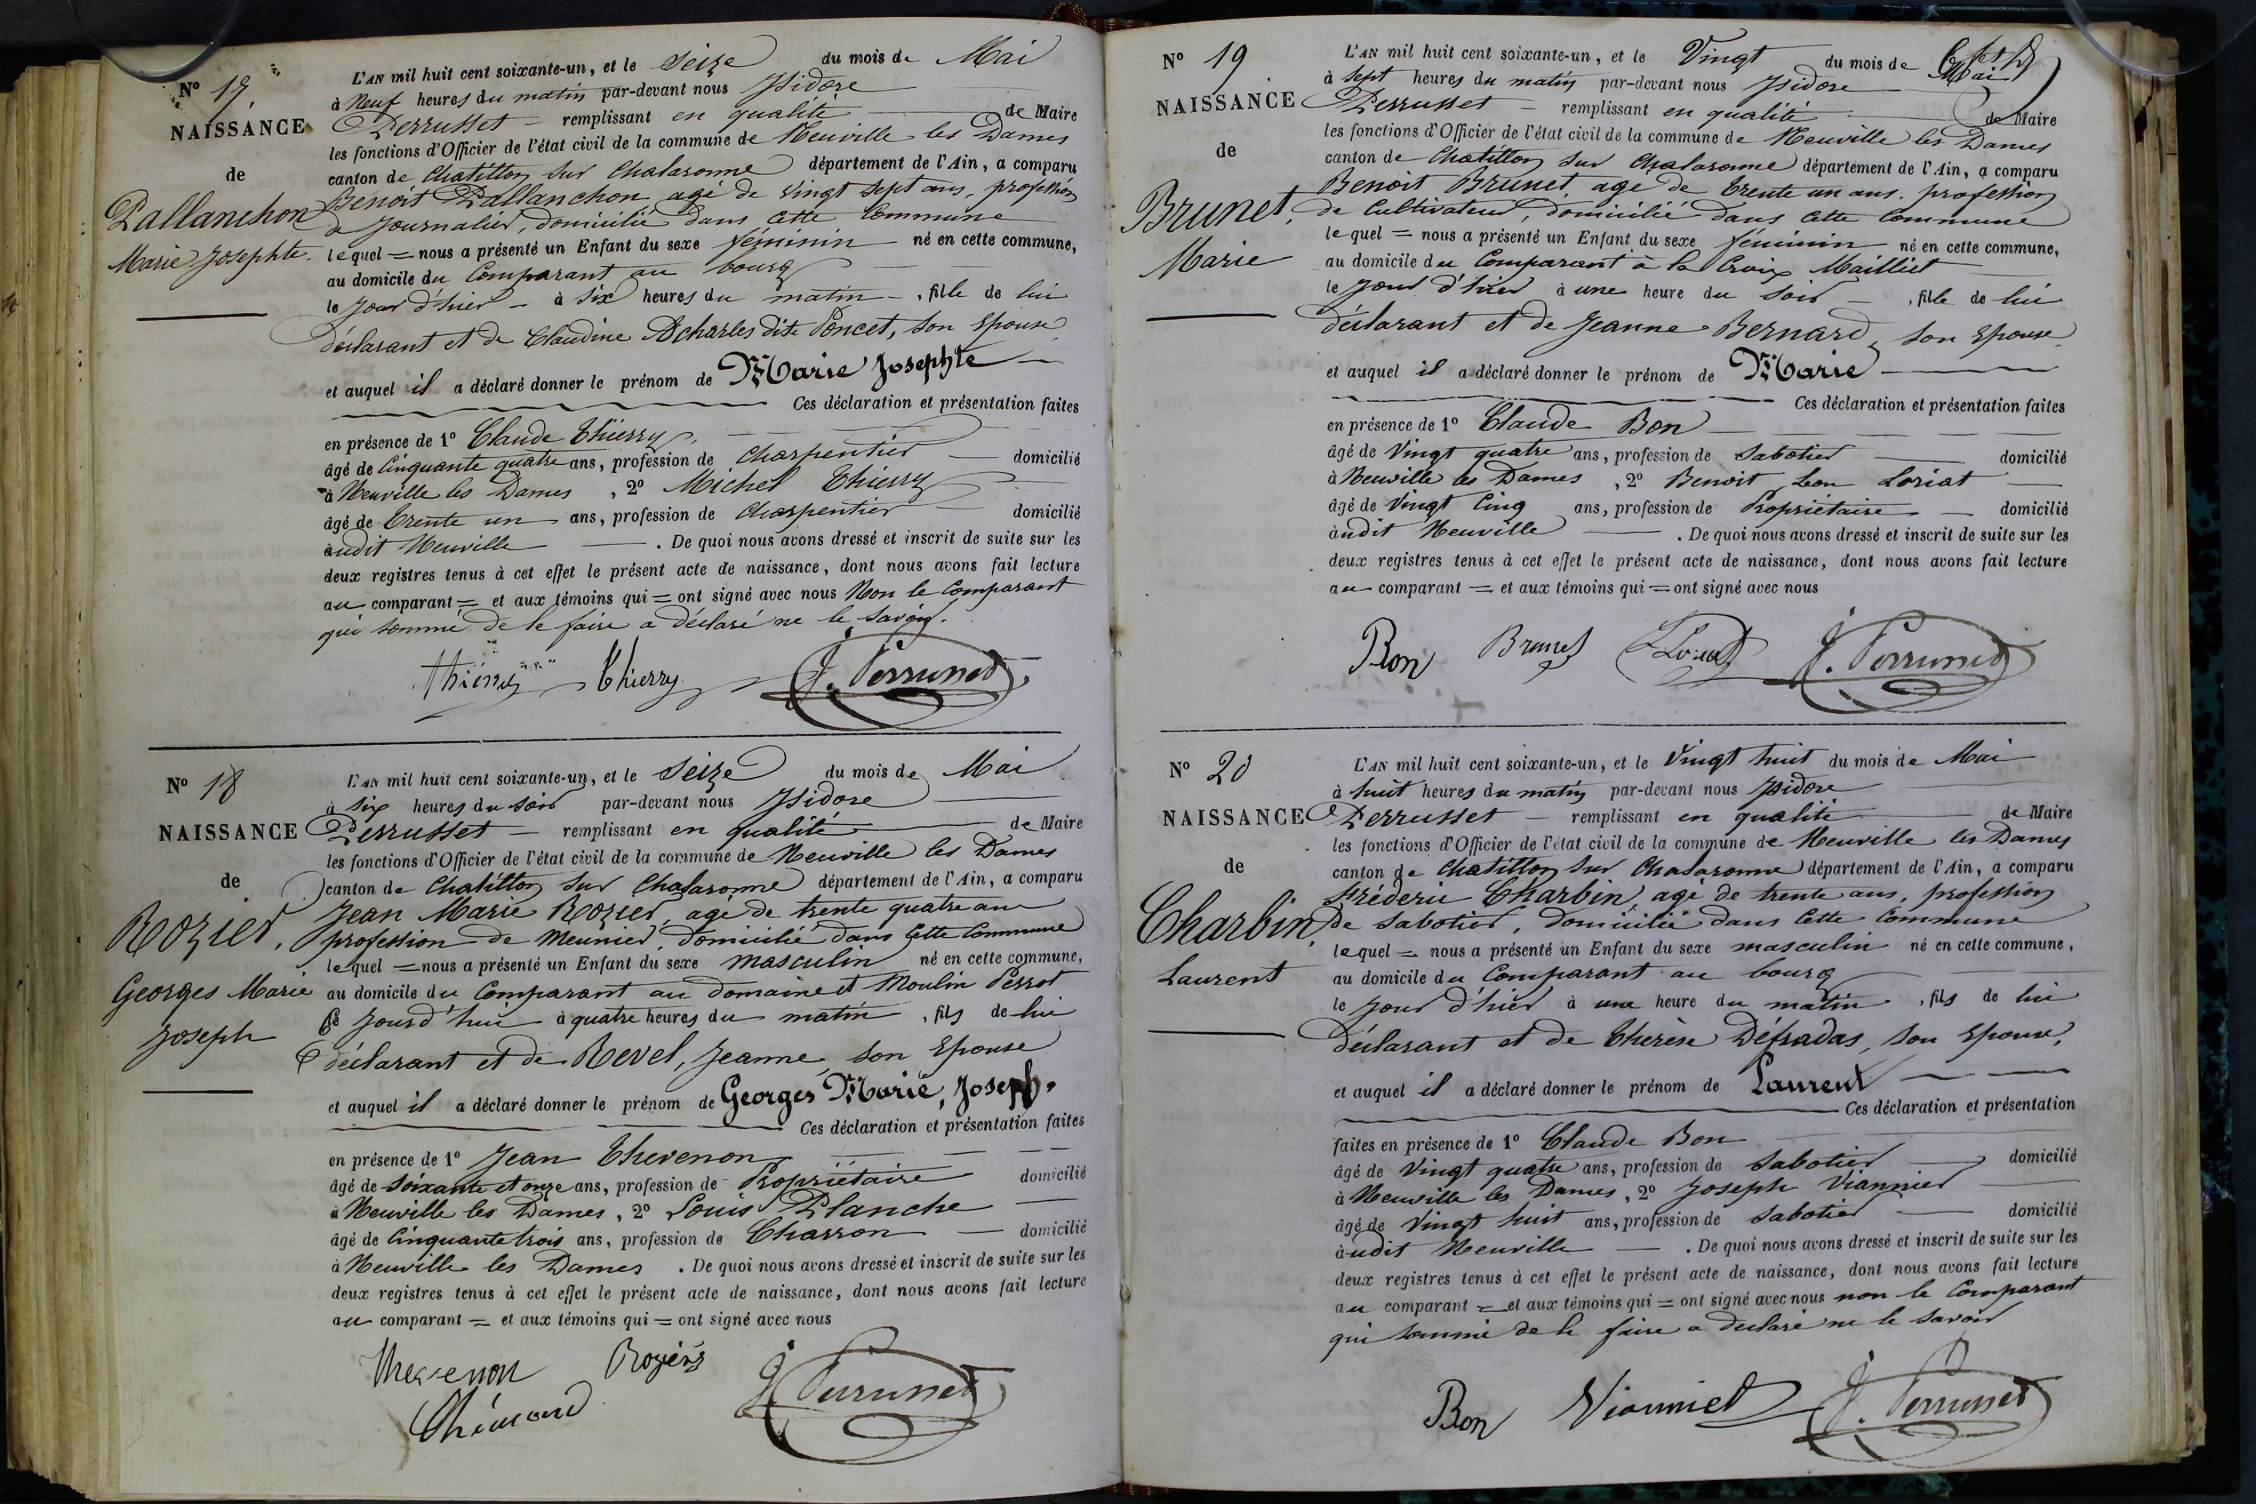 N° 17.
NAISSANCE
de
Pallanchon
Marie Josephte.
L'AN mil huit cent soixante-un, et le Seize du mois de Mai
à Neuf heures du matin par-devant nous Isidore
Perrusset remplissant en qualité de Maire
les fonctions d'Officier de l'état civil de la commune de Neuville les Dames
canton de Chatillon sur Chalaronne département de l'Ain, a comparu
Benoit Pallanchon agé de vingt sept ans, profession
de Journalier, domicilié dans cette Commune
lequel = nous a présenté un Enfant du sexe féminin né en cette commune,
au domicile du Comparant au bourg
le Jour d'hier à six heures du matin, fille de lui
déclarant et de Claudine Acharles dite Poncet, son Epouse
et auquel il a déclaré donner le prénom de Marie Josephte
Ces déclaration et présentation faites
en présence de 1° Claude Thierry,
âgé de Cinquante quatre ans, profession de Charpentier domicilié
à Neuville les Dames, 2° Michel Thierry
âgé de trente un ans, profession de Charpentier domicilié
audit Neuville. De quoi nous avons dressé et inscrit de suite sur les
deux registres tenus à cet effet le présent acte de naissance, dont nous avons fait lecture
au comparant = et aux témoins qui = ont signé avec nous Non le Comparant
qui sommé de le faire a déclaré ne le savoir.
Thierry Thierry J. Perrusset
N° 18
NAISSANCE
de
Rozier,
Georges Marie
Joseph
L'AN mil huit cent soixante-un, et le Seize du mois de Mai
à six heures du soir par-devant nous Isidore
Perrusset remplissant en qualité de Maire
les fonctions d'Officier de l'état civil de la commune de Neuville les Dames
canton de Chatillon sur Chalaronne département de l'Ain, a comparu
Jean Marie Rozier, agé de trente quatre ans
profession de Meunier, domicilié dans cette Commune
lequel = nous a présenté un Enfant du sexe masculin né en cette commune,
au domicile du Comparant au domaine et Moulin Perrot
Ce Jourd'hui à quatre heures du matin, fils de lui
déclarant et de Revel, Jeanne, son Epouse
et auquel il a déclaré donner le prénom de Georges Marie, Joseph.
Ces déclaration et présentation faites
en présence de 1° Jean Thevenon
âgé de soixante et onze ans, profession de Propriétaire domicilié
à Neuville les Dames, 2° Louis Planche
âgé de Cinquante trois ans, profession de Charron domicilié
à Neuville les Dames. De quoi nous avons dressé et inscrit de suite sur les
deux registres tenus à cet effet le présent acte de naissance, dont nous avons fait lecture
au comparant = et aux témoins qui = ont signé avec nous
Thevenon J. Perrusset
N° 19
NAISSANCE
de
Brunet,
Marie
L'AN mil huit cent soixante-un, et le Vingt du mois de Mai
à sept heures du matin par-devant nous Isidore
Perrusset remplissant en qualité de Maire
les fonctions d'Officier de l'état civil de la commune de Neuville les Dames
canton de Chatillon sur Chalaronne département de l'Ain, a comparu
Benoit Brunet, agé de trente un ans. profession
de Cultivateur, domicilié dans cette Commune
lequel = nous a présenté un Enfant du sexe féminin né en cette commune,
au domicile du Comparant à la Croix Mailliet
le Jour d'hier à une heure du soir, fille de lui
déclarant et de Jeanne Bernard, son Epouse
et auquel il a déclaré donner le prénom de Marie
Ces déclaration et présentation faites
en présence de 1° Claude Bon
âgé de Vingt quatre ans, profession de Sabotier domicilié
à Neuville les Dames, 2° Benoit Léon Loriat
âgé de Vingt Cinq ans, profession de Propriétaire domicilié
audit Neuville. De quoi nous avons dressé et inscrit de suite sur les
deux registres tenus à cet effet le présent acte de naissance, dont nous avons fait lecture
au comparant = et aux témoins qui = ont signé avec nous
Bon Brunet J. Perrusset
N° 20
NAISSANCE
de
Charbin,
Laurent
L'AN mil huit cent soixante-un, et le Vingt huit du mois de Mai
à huit heures du matin par-devant nous Isidore
Perrusset remplissant en qualité de Maire
les fonctions d'Officier de l'état civil de la commune de Neuville les Dames
canton de Chatillon sur Chalaronne département de l'Ain, a comparu
Fréderic Charbin, agé de trente ans, profession
de Sabotier, domicilié dans cette Commune
lequel = nous a présenté un Enfant du sexe masculin né en cette commune,
au domicile du Comparant au bourg
le Jour d'hier à une heure du matin, fils de lui
déclarant et de Therèse Defradas, son Epouse,
et auquel il a déclaré donner le prénom de Laurent
Ces déclaration et présentation
faites en présence de 1° Claude Bon
âgé de Vingt quatre ans, profession de Sabotier domicilié
à Neuville les Dames, 2° Joseph Viannier
âgé de Vingt huit ans, profession de Sabotier domicilié
audit Neuville. De quoi nous avons dressé et inscrit de suite sur les
deux registres tenus à cet effet le présent acte de naissance, dont nous avons fait lecture
au comparant = et aux témoins qui = ont signé avec nous non le Comparant
qui sommé de le faire a déclaré ne le savoir
Bon Vionnier J. Perrusset